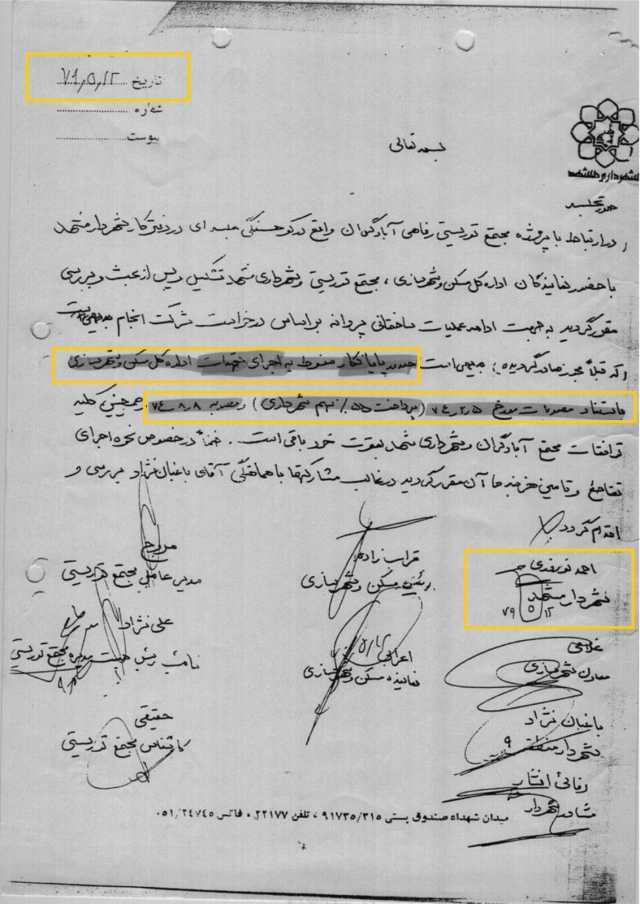 تاریخ ۷۹٫۵٫۱۲
شماره
پیوست
شهرداری مشهد
بسمه تعالی
صورتجلسه
در ارتباط با پروژه مجتمع توریستی رفاهی آبادگران واقع در کوهسنگی جلسه ای در دفتر کار شهردار مشهد
با حضور نمایندگان اداره کل مسکن و شهرسازی ، مجتمع توریستی و شهرداری مشهد تشکیل و پس از بحث و بررسی
مقرر گردید به جهت ادامه عملیات ساختمانی پروانه بر اساس درخواست شرکت انجام
که قبلاً مجوز صادر گردیده ؛ بدیهی است صدور پایانکار منوط به اجرای تعهدات اداره کل مسکن و شهرسازی
باستناد مصوبات مورخ ۷۴٫۲٫۵ (پرداخت ۵۵٪ سهم شهرداری) و مصوبه ۷۴٫۸٫۸ و همچنین کلیه
توافقات مجتمع آبادگران و شهرداری مشهد بقوت خود باقی است . ضمناً در خصوص نحوه اجرای
تقاطع و تامین هزینه ها آن مقرر گردید در قالب مشارکتها با هماهنگی آقای باغبان نژاد بررسی و
اقدام گردد
احمد نوروزی
شهردار مشهد
۷۹ ۵ ۱۲
قراب زاده
رئیس مسکن و شهرسازی
مدیر عامل مجتمع توریستی
علی نژاد
نائب رئیس هیئت مدیره مجتمع توریستی
اعرابی
نماینده مسکن و شهرسازی
غلامی
معاون شهرسازی
حقیقی
کارشناس مجتمع توریستی
باغبان نژاد
شهردار منطقه ۹
رمانی افشار
مشاور شهردار
میدان شهداء صندوق پستی ۹۱۷۳۵/۳۱۵ ، تلفن ۲۲۱۷۷ ، فاکس ۰۵۱/۲۴۷۴۵